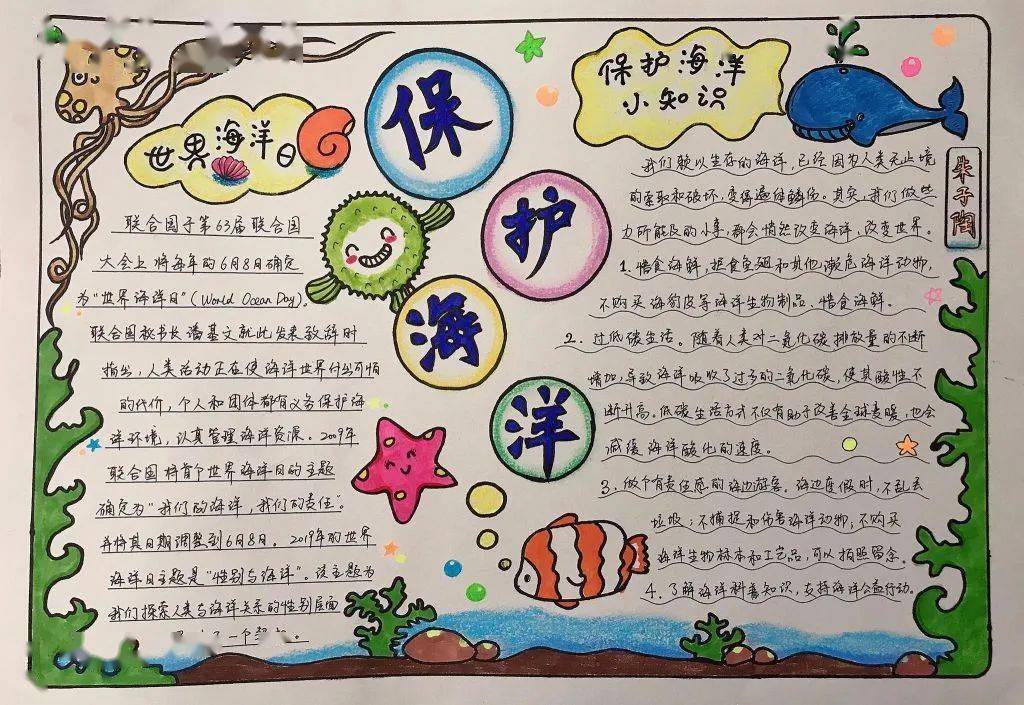 保
护
海
洋
世界海洋日
联合国于第63届联合国
大会上将每年的6月8日确定
为“世界海洋日”(World Ocean Day)。
联合国秘书长潘基文就此发表致辞时
指出,人类活动正在使海洋世界付出可怕
的代价,个人和团体都有义务保护海
洋环境,认真管理海洋资源。2009年
联合国将首个世界海洋日的主题
确定为“我们的海洋,我们的责任”。
并将其日期调整到6月8日。2019年的世界
海洋日主题是“性别与海洋”。该主题为
我们探索人类与海洋关系的性别层面
一个
保护海洋
小知识
朱子陶
我们赖以生存的海洋,已经因为人类无止境
的索取和破坏,变得遍体鳞伤。其实,我们做些
力所能及的小事,都会悄然改变海洋,改变世界。
1.惜食海鲜,拒食鱼翅和其他濒危海洋动物,
不购买海豹皮等海洋生物制品、惜食海鲜。
2.过低碳生活。随着人类对二氧化碳排放量的不断
增加,导致海洋吸收了过多的二氧化碳,使其酸性不
断升高。低碳生活方式不仅有助于改善全球变暖,也会
减缓海洋酸化的速度。
3.做个有责任感的海边游客。海边度假时,不乱丢
垃圾;不捕捉和伤害海洋动物,不购买
海洋生物标本和工艺品,可以拍照留念。
4.了解海洋科普知识,支持海洋公益行动。